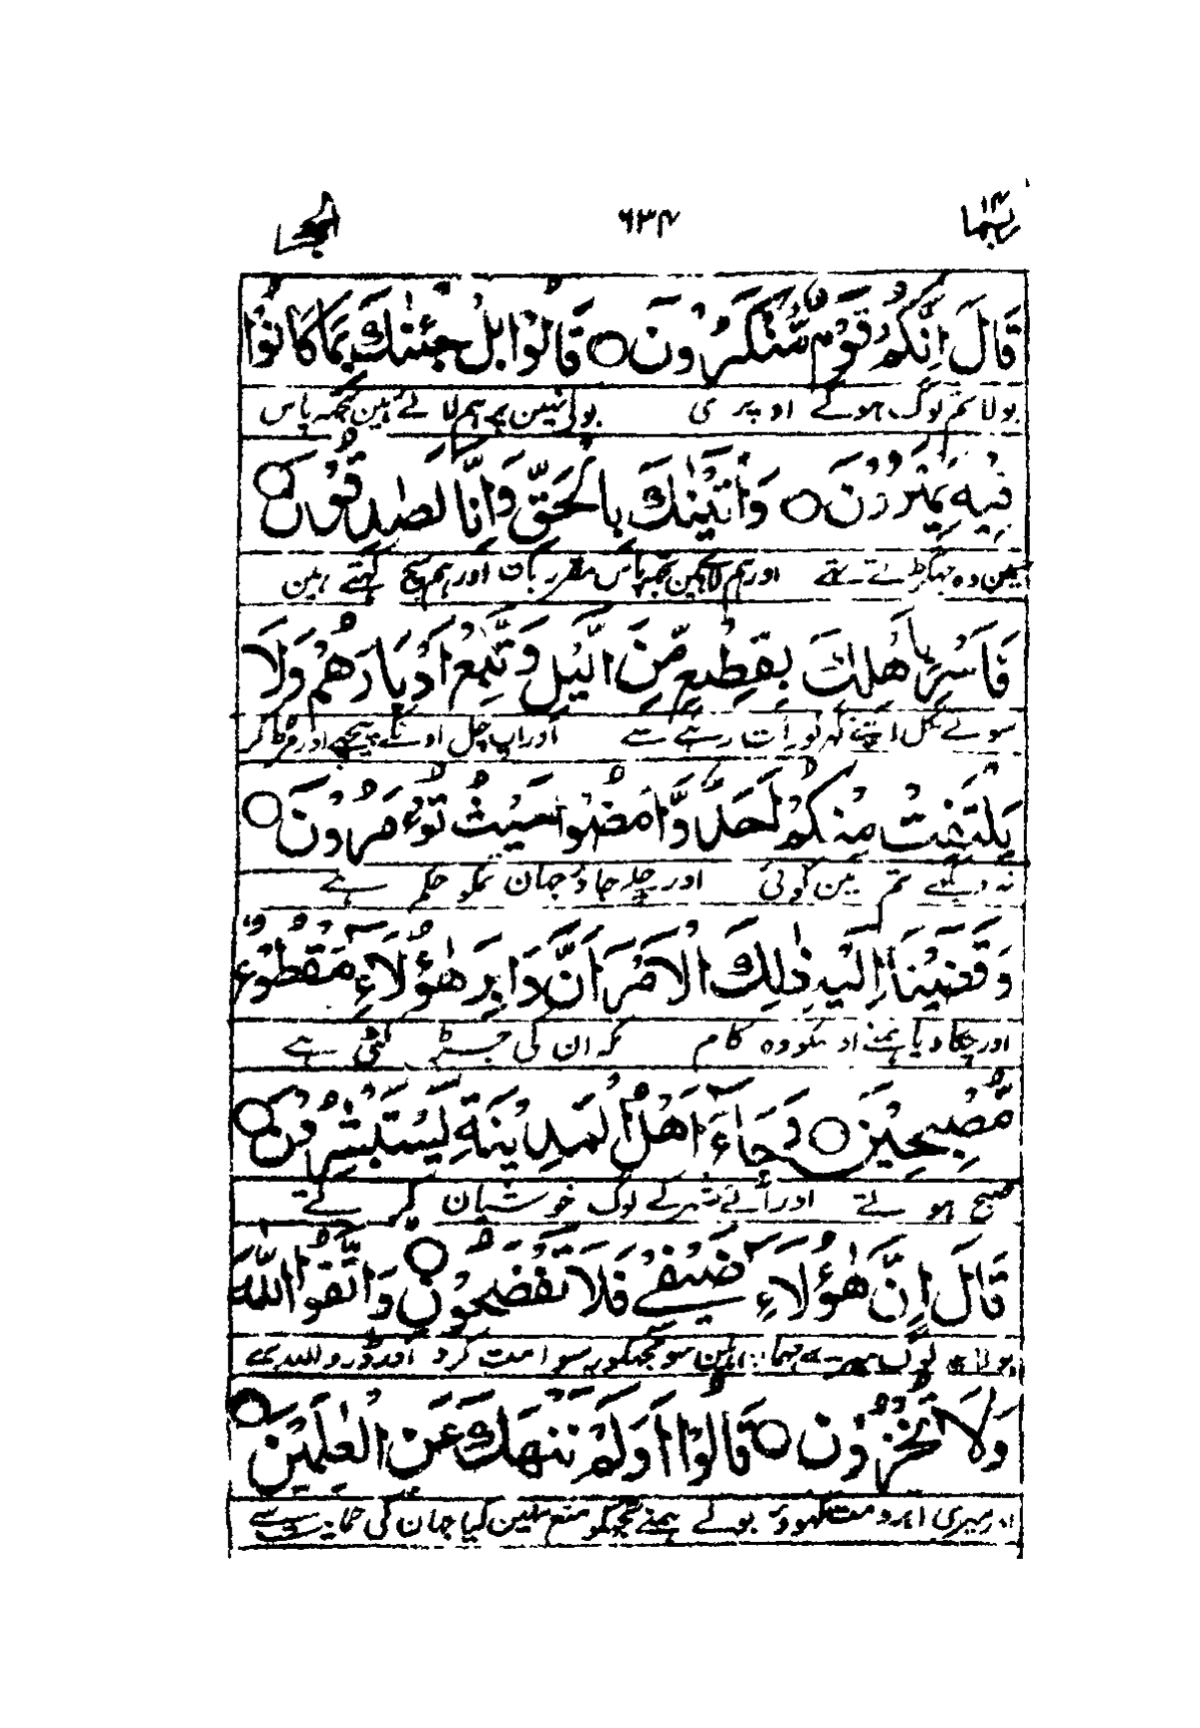 ربما ۱۴ ۶۳۴ الحجر
قَالَ اِنَّكُمْ قَوْمٌ مُّنْكَرُوْنَ ○ قَالُوْا بَلْ جِئْنٰكَ بِمَا كَانُوْا
بولا تم لوگ ہوگے اوپری بولے نہین پر ہم لائے ہین تجھہ پاس
فِيْهِ يَمْتَرُوْنَ ○ وَاَتَيْنٰكَ بِالْحَقِّ وَاِنَّا لَصٰدِقُوْنَ ○
وہ جھگڑتے تھے اور ہم لائے ہین تجھہ پاس مقرر بات اور ہم سچ کہتے ہین
فَاَسْرِ بِاَهْلِكَ بِقِطْعٍ مِّنَ الَّيْلِ وَاتَّبِعْ اَدْبَارَهُمْ وَلَا
سو لے نکل اپنے گہر کو رات رہے سے اور آپ چل اونکے پیچھے اور مڑ کر
يَلْتَفِتْ مِنْكُمْ اَحَدٌ وَّامْضُوْا حَيْثُ تُؤْمَرُوْنَ ○
نہ دیکھے تم مین کوئی اور چلے جاؤ جہان تمکو حکم ہے
وَقَضَيْنَا اِلَيْهِ ذٰلِكَ الْاَمْرَ اَنَّ دَابِرَ هٰؤُلَاءِ مَقْطُوْعٌ
اور چکا دیا ہمنے اوسکو وہ کام کہ ان کی جڑ کٹی ہے
مُّصْبِحِيْنَ ○ وَجَاءَ اَهْلُ الْمَدِيْنَةِ يَسْتَبْشِرُوْنَ ○
صبح ہوتے اور آئے شہر کے لوگ خوشیان کرتے
قَالَ اِنَّ هٰؤُلَاءِ ضَيْفِيْ فَلَا تَفْضَحُوْنِ ○ وَاتَّقُوا اللّٰهَ
بولا یہ لوگ میرے مہمان ہین سو مجھکو رسوا مت کرو اور ڈرو اللہ سے
وَلَا تُخْزُوْنِ ○ قَالُوْا اَوَلَمْ نَنْهَكَ عَنِ الْعٰلَمِيْنَ ○
اور میری ابرو مت کھوو بولے ہمنے تجھکو منع نہین کیا جہان کی حمایت سے